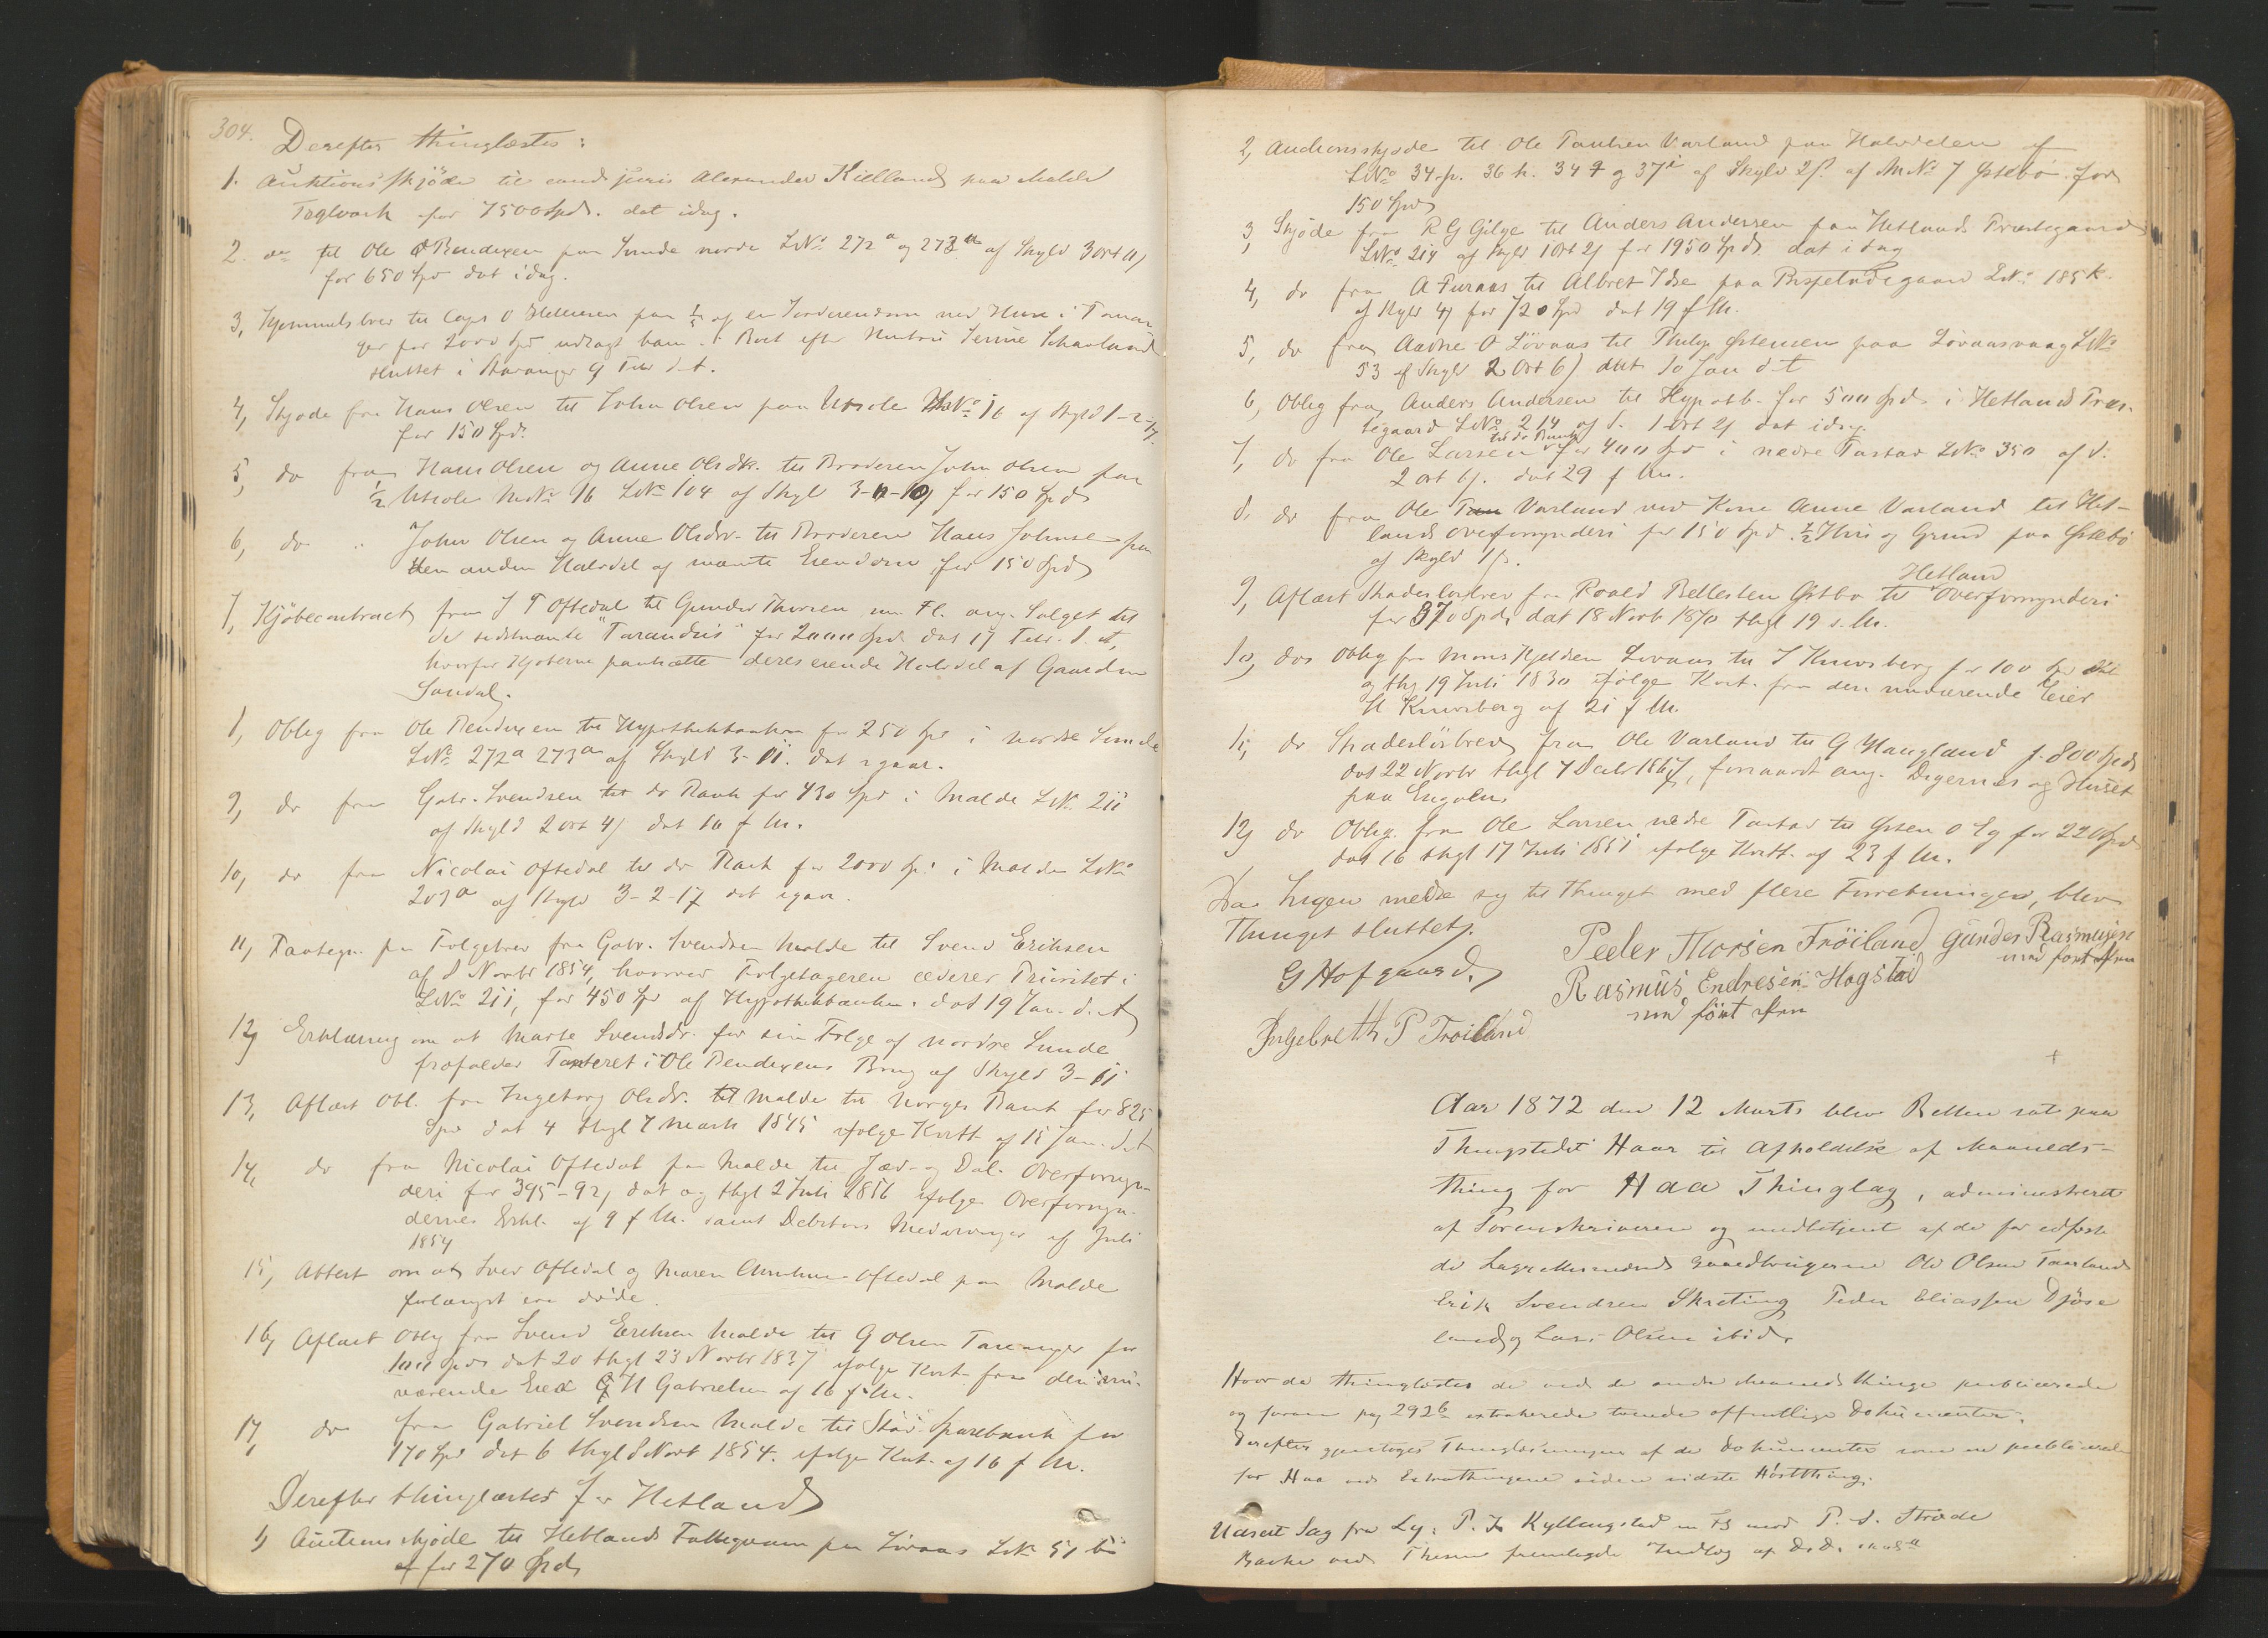 304.
Derefter thinglæstes:
1. Auktionsskjöde til cand juris Alexander Kielland paa Malde
Teglværk for 7500 Spd. dat idag.
2. do til Ole Bendixen paa Sunde nordre LNo 272a og 273a af Skyld 3 ort 11
for 650 Spd dat idag.
3, Hjemmelsbrev til Capt O Helliesen paa 1/5 af en Jordeiendom med Huse i Tanan-
ger for 2000 Spd udlagt ham i Boet efter Hustru Serine Schanland
sluttet i Stavanger 9 Febr d.A.
4, Skjøde fra Hans Olsen til John Olsen paa Utsole MNo 16 af Skyld 1-2-17.
for 150 Spd.
5, do fra Hans Olsen og Anne Olsdtr. til Broderen John Olsen paa
1/2 Utsole MNo 16 LNo 104 af Skyld 3-10 for 150 Spd
6, do " John Olsen og Anne Olsdtr. til Broderen Hans Johnsen paa
den anden Halvdel af nævnte Eiendom for 150 Spd
7, Kjøbecontract fra J T Oftedal til Gunder Thorsen m. Fl. ang. Salget til
de sidstnævnte "Tarandus" for 2000 Spd dat 17 Febr. d.A,
hvorfor Kjøberne pantsætte deres eiende Halvdel af Gaarden
Sandal.
8, Oblig fra Ole Bendixen til Hypothekbanken for 250 Spd i nordre Sunde
LNo 272a 273a af Skyld 3-11. dat igaar.
9, do fra Gabr. Svendsen til do Bank for 430 Spd i Malde LNo 211
af Skyld 2 ort 4 dat 10 f M.
10, do fra Nicolai Oftedal til do Bank for 2000 Sp: i Malde LNo
209a af Skyld 3-2-17 dat igaar.
11, Paategn. paa Følgebrev fra Gabr. Svendsen Malde til Svend Eriksen
af 8 Novbr 1854, hvorved Følgetageren cederer Prioritet i
LNo 211, for 450 Spd af Hypothekbanken. dat 19 Jan. d. A
12, Erklæring om at Marte Svendsdr. for sin Følge af nordre Sunde
frafalder Panteret i Ole Bendixens Brug af Skyld 3-11
13, Aflæst Obl. fra Ingeborg Olsdr. Malde til Norges Bank for 825
Spd dat 4 thgl 7 Marts 1845 ifølge Kvitt. af 15 Jan. d.A
14, do fra Nicolai Oftedal paa Malde til Jæd- og Dal. Overformyn-
deri for 395-92, dat og thgl 2 Juli 1856 ifølge Overformyn-
dernes Erkl. af 9 f M. samt Debitors af Juli
1854
15, Attest om at Svend Oftedal og Maren Oftedal paa Malde
forlængst ere døde.
16, Aflæst Oblig fra Svend Eriksen Malde til G Olsen Tananger for
100 Spd dat 20 thgl 23 Novbr 1837 ifølge Kvit. fra den nu-
værende Eier G H Gabrielsen af 16 f M.
17, do fra Gabriel Svendsen Malde til Stav. Sparebank for
170 Spd dat 6 thgl 8 Novt 1854. ifølge Kvit. af 16 f M.
Derefter thinglæstes for Hetland
1, Auctionsskjøde til Hetlands paa Løvaas LNo 51 b
for 270 Spd
2, Auctionsskjøde til Ole Paulsen Varland paa Halvdelen af
LNo 34 p. 36 h. 34 q og 37 i af Skyld 2 ß. af MNo 7 Østebø for
150 Spd
3, Skjöde fra R G Gilge til Anders Andersen paa Hetlands Præstegaard
LNo 214 af Skyld 1 Ort 2 for 1950 Spd. dat idag
4, do fra A Furaas til Albret Idse paa Bispeladegaard LNo 185k
af Skyld 4 for 720 Spd dat 19 f M.
5, do fra Aadne O Løvaas til Philip Østensen paa Løvaasvaag LNo
53 af Skyld 2 Ort 6 dat 10 Jan d A
6, Oblig fra Anders Andersen til Hypothb. for 500 Spd. i Hetland Præs-
tegaard LNo 214 af S. 1 Ort 2 dat idag.
7, do fra Ole Larsen til do Bank for 400 Spd i nedre Tastad LNo 350 af S.
2 ort 6. dat 29 f M.
8. do fra Ole Varland med Kone Anne Varland til Het-
lands Overformynderi for 150 Spd. 1/2 Huus og Grund paa Østebö
af Skyld 1 ß.
9, Aflæst Skadesløsbrev fra Roald Østbø til Hetland Overformynderi
for 370 Spd, dat 18 Novb 1870 thgl 19 s. M.
10, do Oblig fra Mons Kjeldsen Lovaas til J Knudsberg for 100 Spd dat
og thg 19 Juli 1830 ifølge Kvit. fra den nuværende Eier
H Knudsberg af 21 f M.
11, do Skadesløsbrev fra Ole Varland til G Haugland f. 800 Spd
dat 22 Novbr thgl 7 Decbr 1867, forsaavidt ang. Degernes og Huset
paa Engelen
12, do Oblig. fra Ole Larsen nedre Tastad til Østen O Eg for 220 Spd
dat 16 thgl 17 Juli 1851 ifølge Kvitt. af 23 f M.
Da Ingen meldte sig til Thinget med flere Forretninger, blev
Thinget sluttet.
G Hofgaard. Peder Thorsen Fröiland Gunder Rasmusen
med ført Pen
Rasmus Endresen Hogstad
med ført Pen
Ingebreth P Fröiland
Aar 1872 den 12 Marts blev Retten sat paa
Thingstedet Haar til Afholdelse af Maaneds-
thing for Haa Thinglag, administreret
af Sorenskriveren og medbetjent af de for edfæste-
de Lagrettesmænd Gaardbrugerne Ole Olsen Taarland
Erik Svendsen Skreting Peder Eliassen Djøse
land og Lars Olsen ibid.
Hvor da thinglæstes de ved de andre Maanedsthinge publicerede
og foran pag 292b extraherede tvende offentlige Dokumenter.
Derefter gjentoges Thinglæsningen af de Dokumenter som ere publicerede
for Haa ved Extrathingene siden sidste Höstthing.
Uaaret Sag fra Ly: P. Kyllingstad m Fl mod P. S. Strøde
Bache ved Thesen fremlagde Indlæg af D.D.